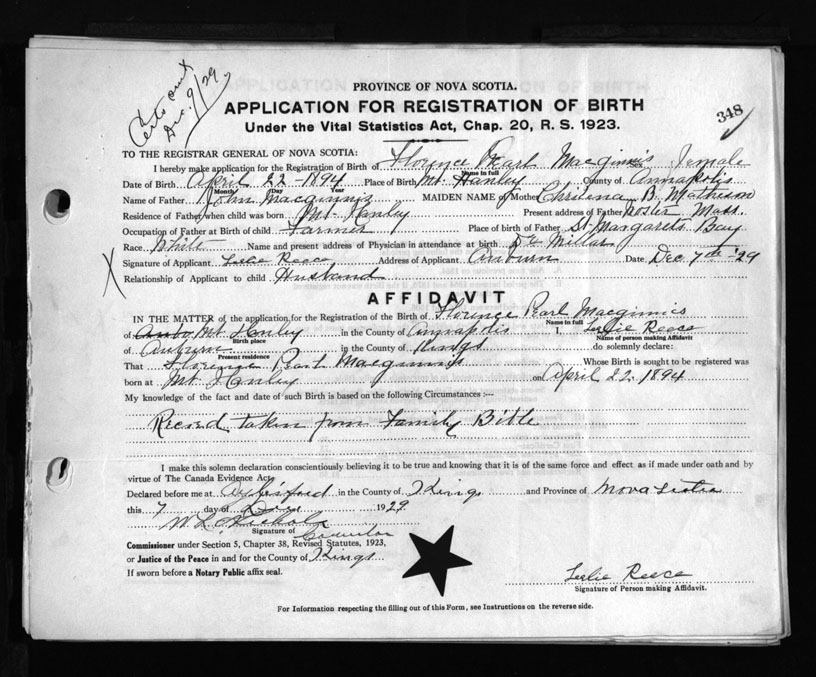 Certs sent
Dec. 9/29
PROVINCE OF NOVA SCOTIA.
APPLICATION FOR REGISTRATION OF BIRTH
Under the Vital Statistics Act, Chap. 20, R. S. 1923.
348
TO THE REGISTRAR GENERAL OF NOVA SCOTIA:
I hereby make application for the Registration of Birth of Florence Pearl Macginnis Sex Female
Name in full
Date of Birth April 22 - 1894 Place of Birth Mt. Hanley County of Annapolis
Month Day Year
Name of Father John Macginnis MAIDEN NAME of Mother Chrilena B. Mathieson
Residence of Father when child was born Mt. Hanley Present address of Father Mass.
Occupation of Father at Birth of child Farmer Place of birth of Father St. Margarets Bay
Race White Name and present address of Physician in attendance at birth Dr. Millar
Signature of Applicant Leslie Reece Address of Applicant Auburn Date Dec 7th '29
Relationship of Applicant to child Husband
AFFIDAVIT
IN THE MATTER of the application, for the Registration of the Birth of Florence Pearl Macginnis
Name in full
of Mt. Hanley in the County of Annapolis I, Leslie Reece
Birth place Name of person making Affidavit
of Auburn in the County of Kings do solemnly declare:
Present residence
That Florence Pearl Macginnis Whose Birth is sought to be registered was
born at Mt. Hanley on April 22. 1894
My knowledge of the fact and date of such Birth is based on the following Circumstances :—
Record taken from Family Bible
I make this solemn declaration conscientiously believing it to be true and knowing that it is of the same force and effect as if made under oath and by
virtue of The Canada Evidence Act,
Declared before me at Aylesford in the County of Kings and Province of Nova Scotia
this 7 day of Dec 1929
W. L. Nichols
Signature of
Commissioner under Section 5, Chapter 38, Revised Statutes, 1923,
or Justice of the Peace in and for the County of Kings
If sworn before a Notary Public affix seal.
Leslie Reece
Signature of Person making Affidavit.
For Information respecting the filling out of this Form, see Instructions on the reverse side.